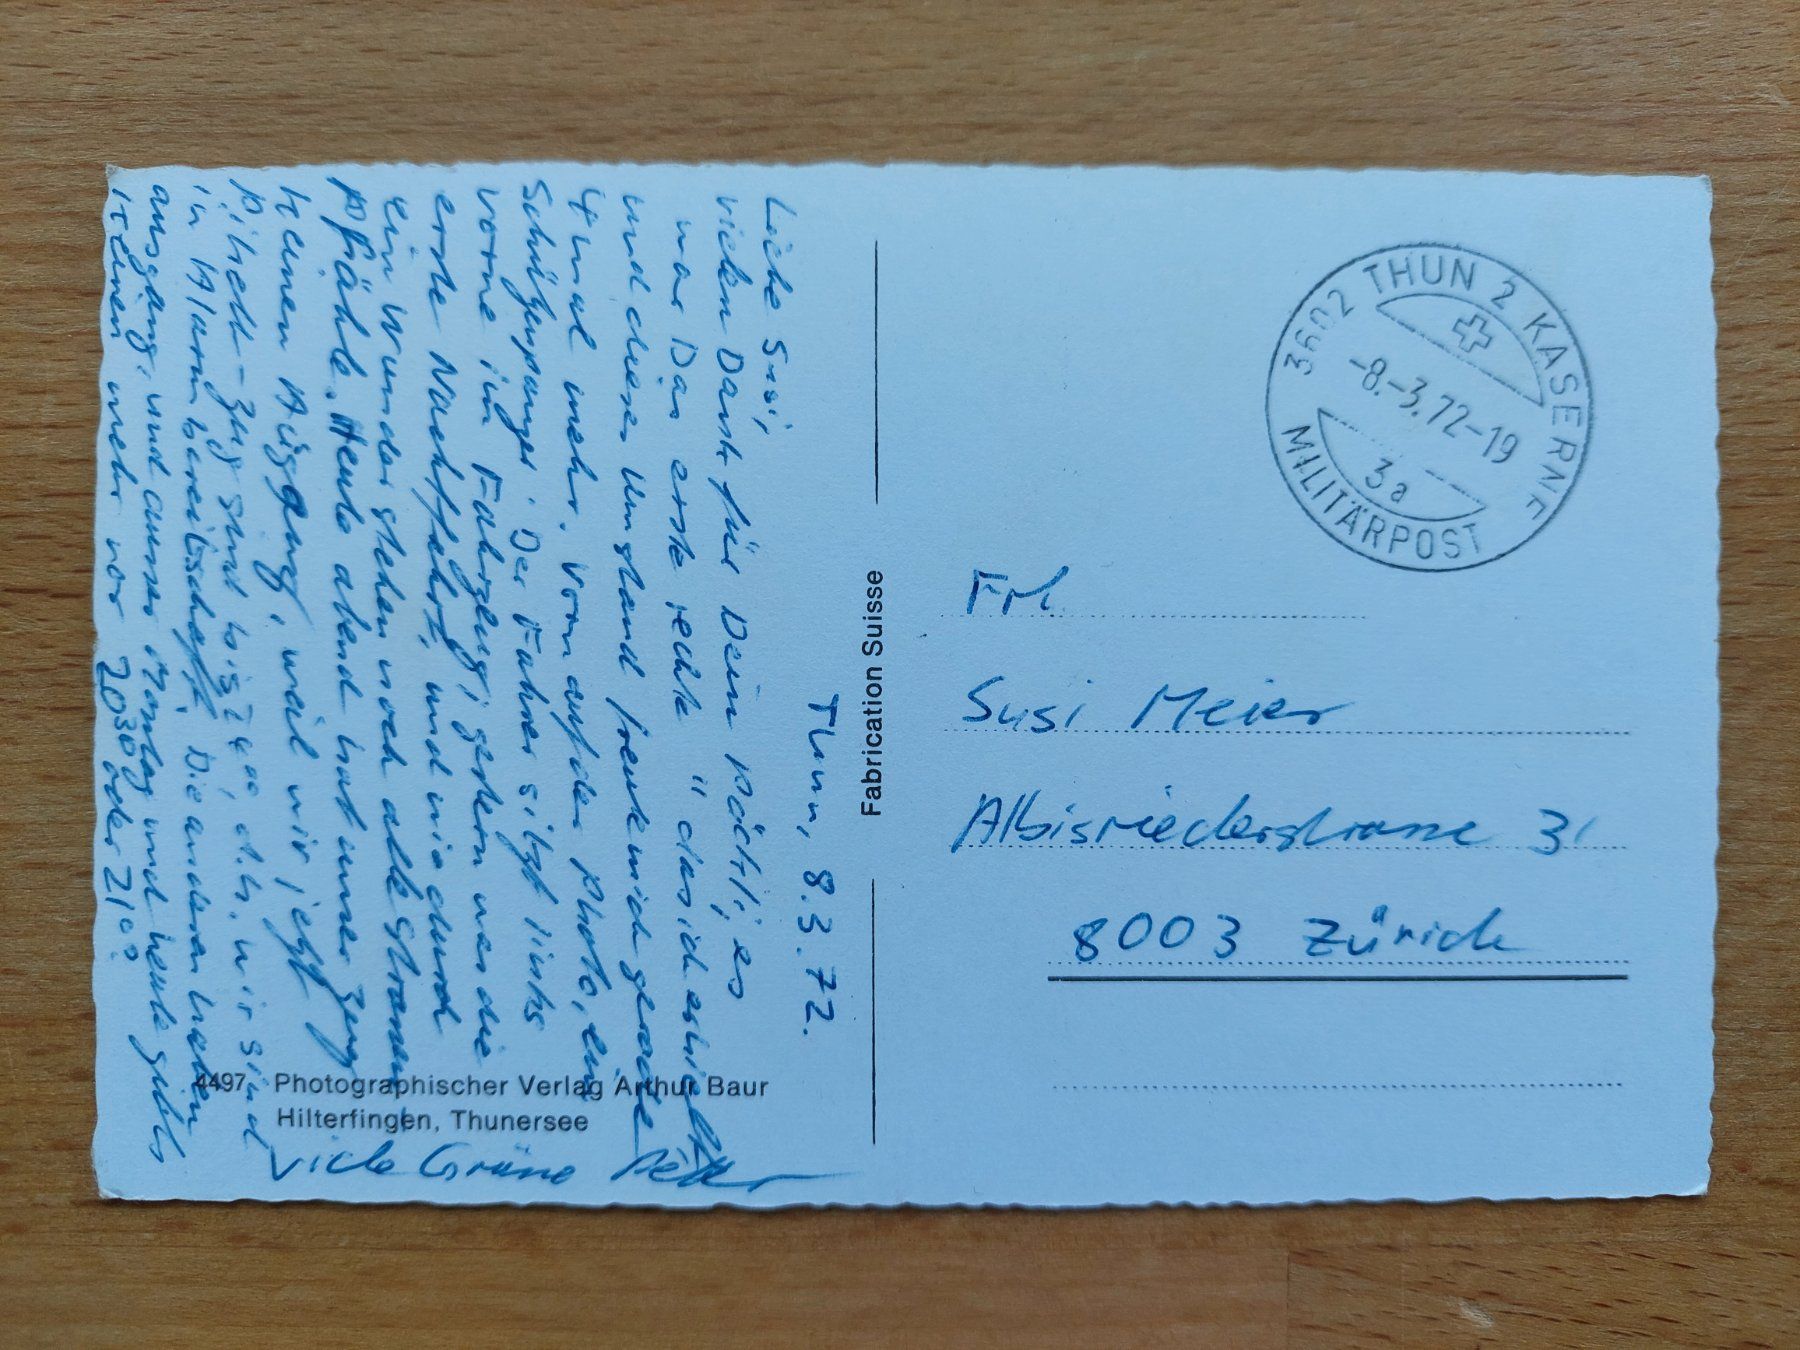 Thun, 8.3.72.
Liebe Susi,
vielen Dank für Dein Päckli, es
war Das erste rechte "das ich erhielt
und dieser Umstand freute mich gerade
4 mal mehr. Vorn auf der Photo, ein
Schützenpanzer. Der Fahrer sitzt links
vorne im Fahrzeug, gestern war die
erste Nachtfahrt, und wie durch
ein Wunder stehen noch alle Strassen
pfähle. Heute abend hat unser Zug
keinen Ausgang, weil wir jetzt
Pikett-Zug sind bis 2400, d.h. wir sind
in Alarmbereitschaft. Die anderen haben
ausgang, und ausser Montag und heute gibts
keinen mehr vor 2030 oder 2100
Viele Grüsse Peter
Fabrication Suisse
4497 Photographischer Verlag Arthur Baur
Hilterfingen, Thunersee
3602 THUN 2 KASERNE
-8.-3.72-19
3a
MILITÄRPOST
Frl.
Susi Meier
Albisriederstrasse 31
8003 Zürich